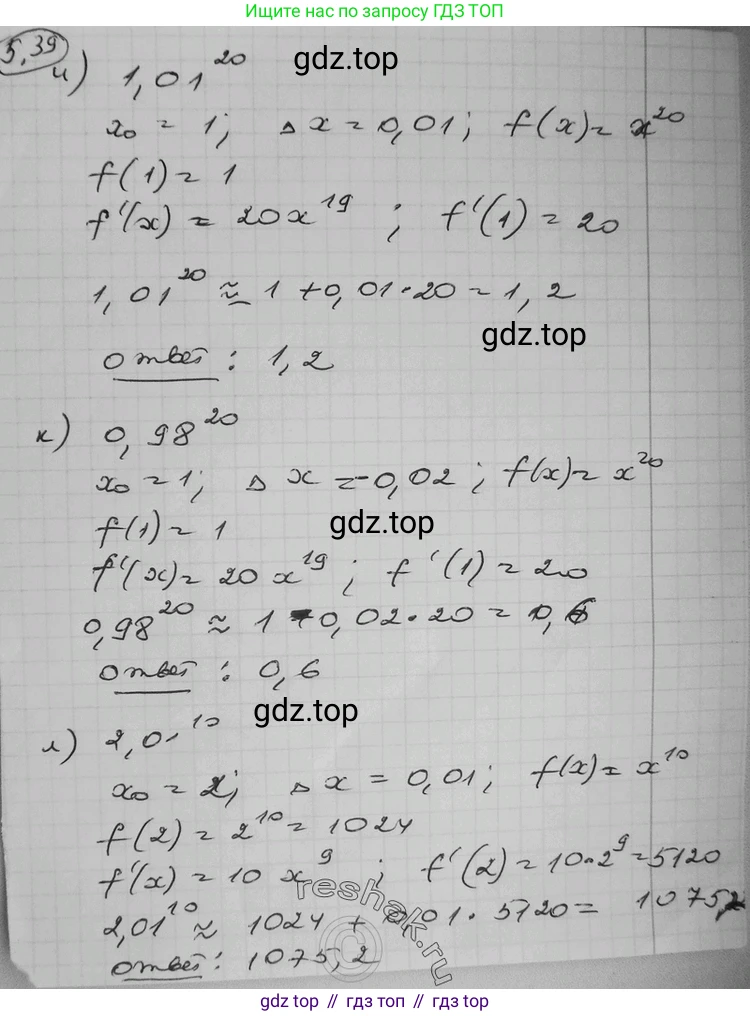 Ищите нас по запросу ГДЗ ТОП
5,39
и) 1,01²⁰
gdz.top
x₀ = 1; Δx = 0,01; f(x) = x²⁰
f(1) = 1
f'(x) = 20x¹⁹ ; f'(1) = 20
1,01²⁰ ≈ 1 + 0,01·20 = 1,2
gdz.top
ответ: 1,2
к) 0,98²⁰
x₀ = 1; Δx = -0,02 ; f(x) = x²⁰
gdz.top
f(1) = 1
f'(x) = 20x¹⁹ ; f'(1) = 20
0,98²⁰ ≈ 1 - 0,02·20 = 0,6
ответ: 0,6
gdz.top
л) 2,01¹⁰
x₀ = 2; Δx = 0,01; f(x) = x¹⁰
f(2) = 2¹⁰ = 1024
f'(x) = 10x⁹ ; f'(2) = 10·2⁹ = 5120
reshak.ru
2,01¹⁰ ≈ 1024 + 0,01·5120 = 1075,2
ответ: 1075,2
gdz top // гдз топ // gdz.top